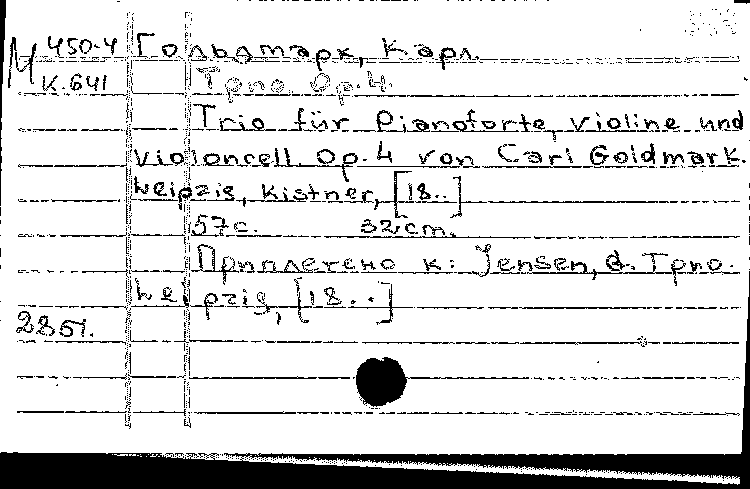 М 450-4 Гольдмарк, Карл.
К.641 Трио. Op.4.
Trio für Pianoforte, Violine und
Violoncell. Op.4 von Carl Goldmark.
Leipzig, Kistner, [18..]
57с. 32cm.
Приплетено к: Jensen, A. Трио.
Leipzig, [18..]